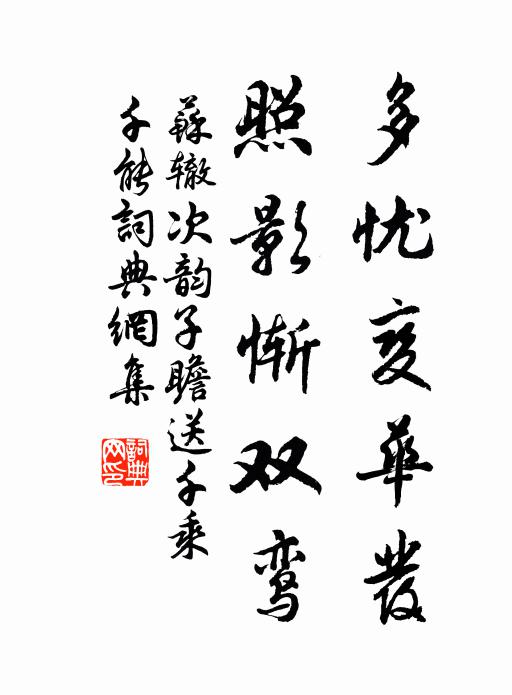 多忧变华發
照影惭双鸾
蘇辙次韵子瞻送千乘
千能詞典網集
詞典網印